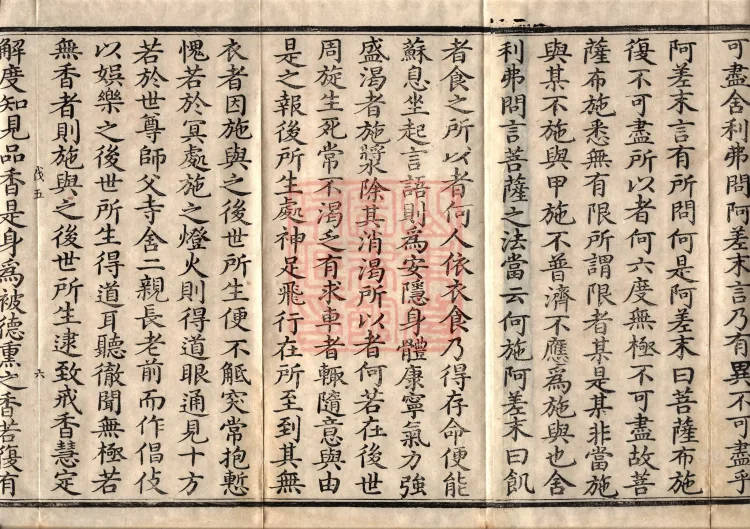 可盡舍利弗問阿差末言乃有異不可盡乎
阿差末言有所問何是阿差末曰菩薩布施
復不可盡所以者何六度無極不可盡故菩
薩布施悉無有限所謂限者某是某非當施
與某不施與甲施不普濟不應為施與也舍
利弗問言菩薩之法當云何施阿差末曰飢
者食之所以者何人依衣食乃得存命便能
蘇息坐起言語則為安隱身體康寧氣力強
盛渴者施漿除其消渴所以者何若在後世
周旋生死常不渴乏有求車者輙隨意與由
是之報後所生處神足飛行在所至到其無
衣者因施與之後世所生便不觝突常抱慙
愧若於冥處施之燈火則得道眼通見十方
若於世尊師父寺舍二親長老前而作倡伎
以娛樂之後世所生得道耳聽徹聞無極若
無香者則施與之後世所生逮致戒香慧定
戊五
六
解度知見品香是身為被德熏之香若復有